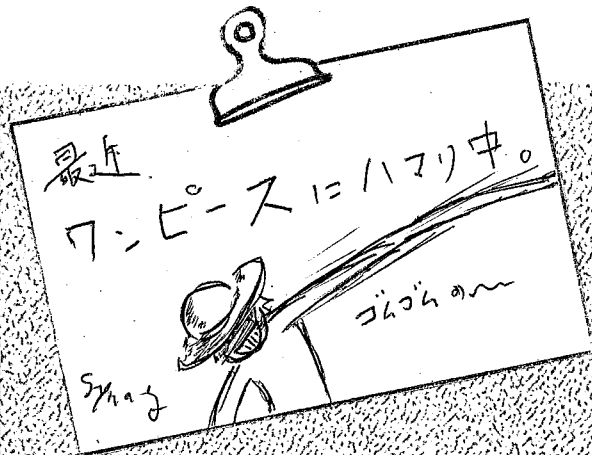 最近
ワンピースにハマり中。
ゴムゴムの〜